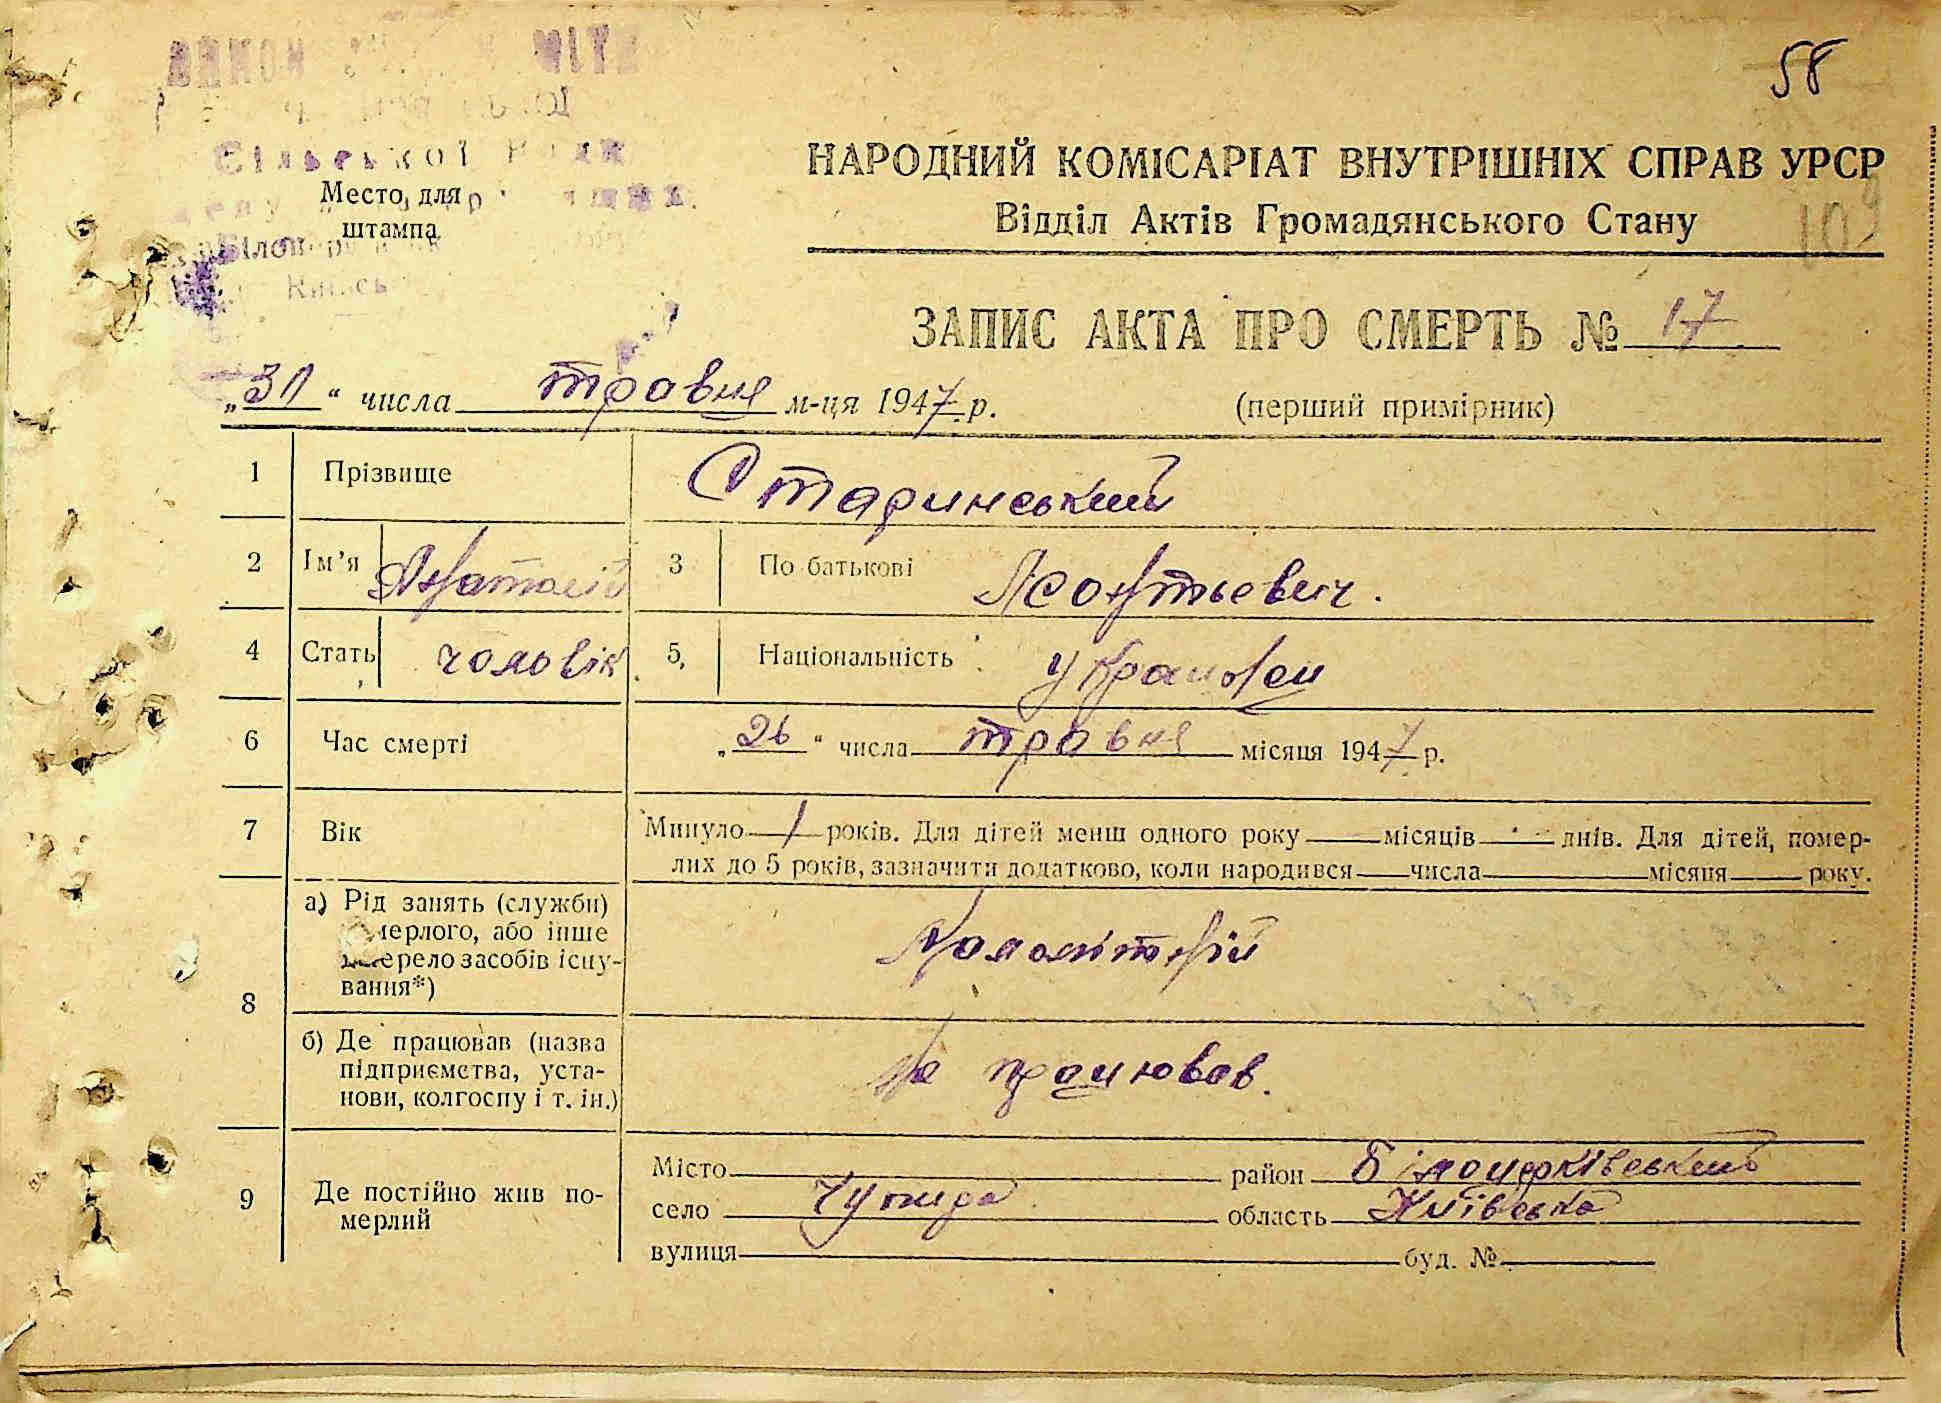 58
Сільської Ради
Место для
штампа
НАРОДНИЙ КОМІСАРІАТ ВНУТРІШНІХ СПРАВ УРСР
Відділ Актів Громадянського Стану
109
ЗАПИС АКТА ПРО СМЕРТЬ № 17
„31“ числа травня м-ця 1947 р.
(перший примірник)
1 Прізвище Старинський
2 Ім’я Анатолій 3 По батькові Леонтьевич.
4 Стать чоловік 5, Національність українец
6 Час смерті „26“ числа травня місяця 1947 р.
7 Вік Минуло 1 років. Для дітей менш одного року — місяців — днів. Для дітей, помер-
лих до 5 років, зазначити додатково, коли народився — числа — місяця — року.
8 а) Рід занять (служби)
мерлого, або інше
джерело засобів існу-
вання*)
Малолітній
б) Де працював (назва
підприємства, уста-
нови, колгоспу і т. ін.)
Не працював.
9 Де постійно жив по-
мерлий
Місто район Білоцерківський
село Чупира область Київська
вулиця буд. №